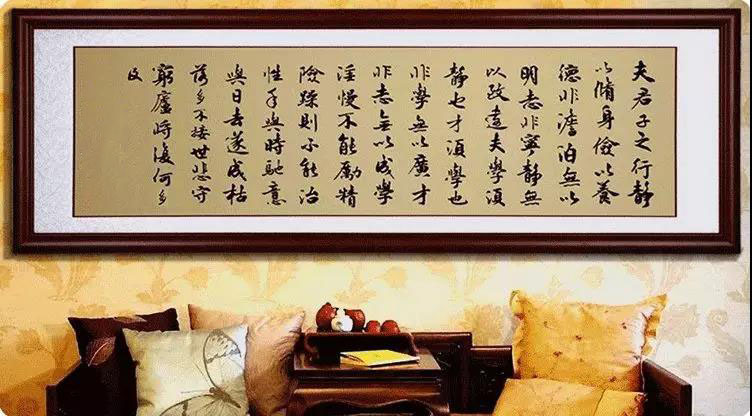 夫君子之行靜
以脩身儉以養
德非澹泊無以
明志非寧靜無
以致遠夫學須
靜也才須學也
非學無以廣才
非志無以成學
淫慢不能勵精
險躁則不能治
性年與時馳意
與日去遂成枯
落多不接世悲守
窮廬將復何
及